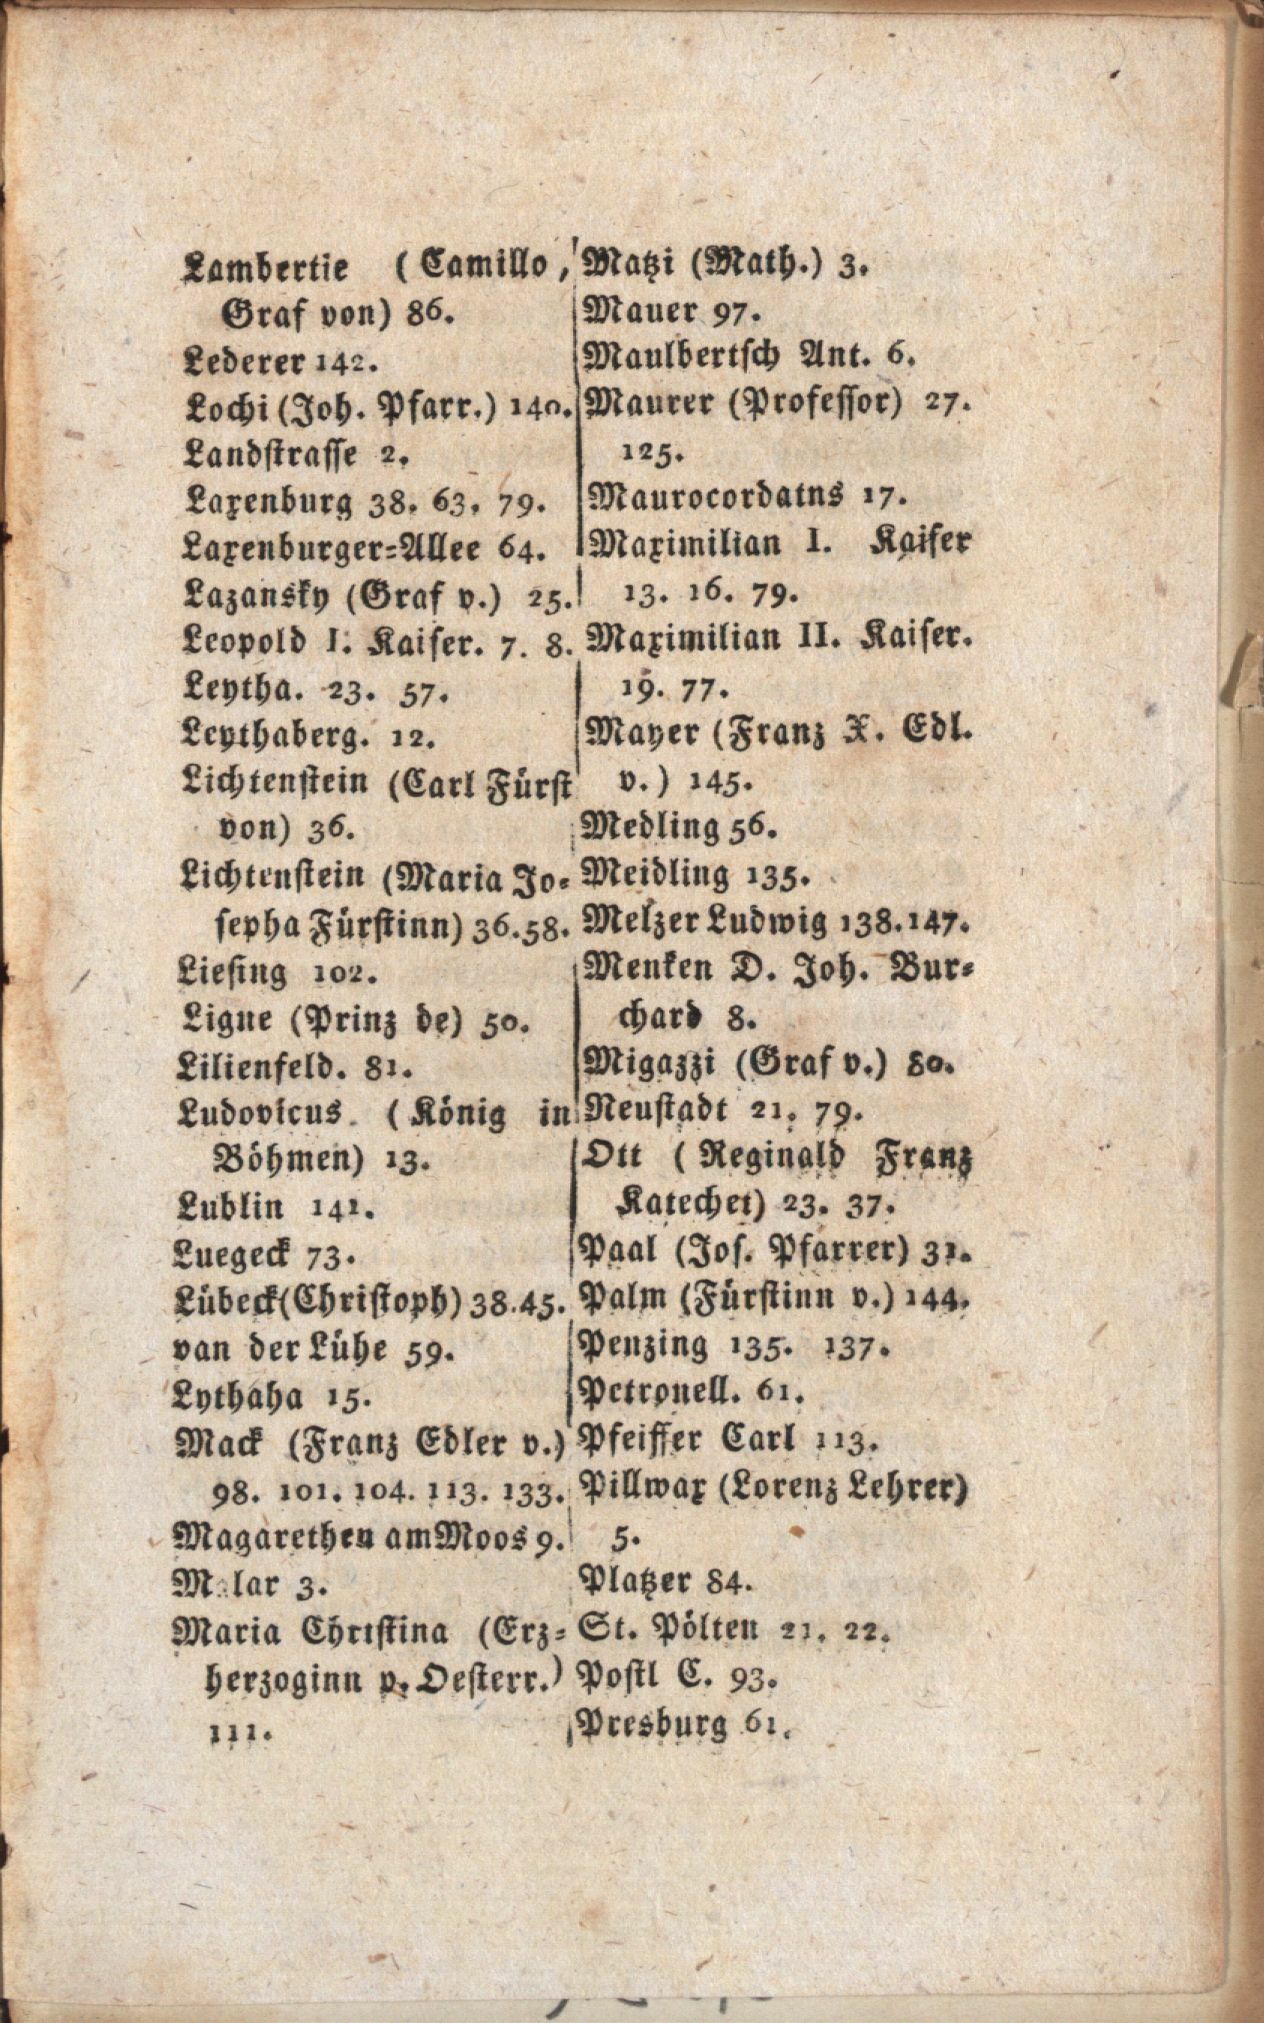 Lambertie (Camillo,
Graf von) 86.
Lederer 142.
Lochi (Joh. Pfarr.) 140.
Landstrasse 2.
Laxenburg 38. 63. 79.
Laxenburger=Allee 64.
Lazansky (Graf v.) 25.
Leopold I. Kaiser. 7. 8.
Leytha. 23. 57.
Leythaberg. 12.
Lichtenstein (Carl Fürst
von) 36.
Lichtenstein (Maria Jo=
sepha Fürstinn) 36.58.
Liesing 102.
Ligne (Prinz de) 50.
Lilienfeld. 81.
Ludovicus (König in
Böhmen) 13.
Lublin 141.
Luegeck 73.
Lübeck (Christoph) 38.45.
van der Lühe 59.
Lythaha 15.
Mack (Franz Edler v.)
98. 101. 104. 113. 133.
Magarethen am Moos 9.
3.
Maria Christina (Erz=
herzoginn v. Oesterr.)
111.
Matzi (Math.) 3.
Mauer 97.
Maulbertsch Ant. 6.
Maurer (Professor) 27.
125.
Maurocordatns 17.
Maximilian I. Kaiser
13. 16. 79.
Maximilian II. Kaiser.
19. 77.
Mayer (Franz X. Edl.
v.) 145.
Medling 56.
Meidling 135.
Melzer Ludwig 138.147.
Menken D. Joh. Bur=
chard 8.
Migazzi (Graf v.) 80.
Neustadt 21. 79.
Ott (Reginald Franz
Katechet) 23. 37.
Paal (Jos. Pfarrer) 31.
Palm (Fürstinn v.) 144.
Penzing 135. 137.
Petronell. 61.
Pfeiffer Carl 113.
Pillwax (Lorenz Lehrer)
5.
Platzer 84.
St. Pölten 21. 22.
Postl C. 93.
Presburg 61.